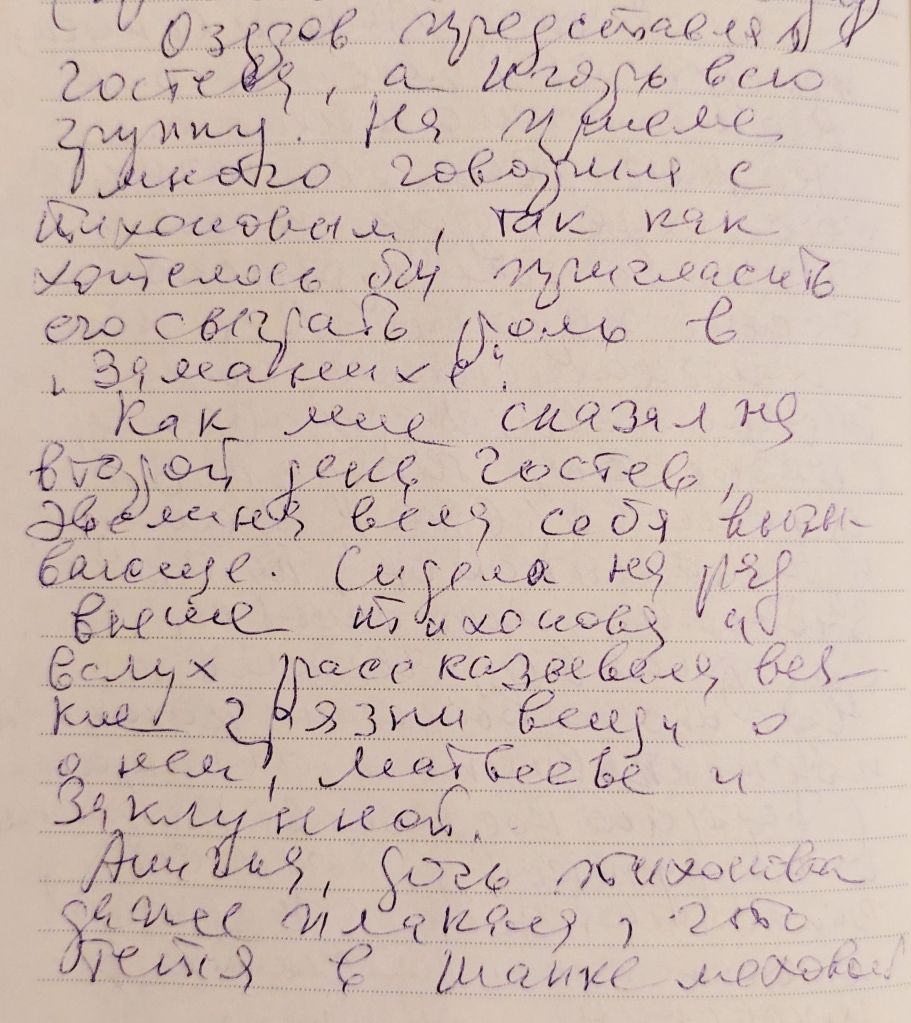 Оздов представлял
Гостева, а Игорь всю
группу. На приеме
много говорили с
Тихоновым, так как
хотелось бы пригласить
его сыграть роль в
„Заманихе“.
Как мне сказал на
второй день Гостев,
Эвелина вела себя вызы-
вающе. Сидела на ряд
выше Тихонова и
вслух рассказывала вся-
кие грязни вещи о
о нем, Матвееве и
Заклунной.
дочь Тихонова
даже плакала, что
тетя в шапке меховой